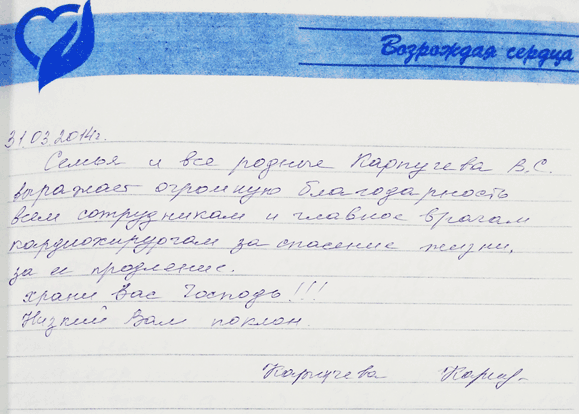 Возрождая сердца
31.03.2014г.
Семья и все родные Карпучева В.С.
выражает огромную благодарность
всем сотрудникам и главное врачам
кардиохирургам за спасение жизни,
за её продление.
храни Вас Господь!!!
Низкий Вам поклон.
Карпучева